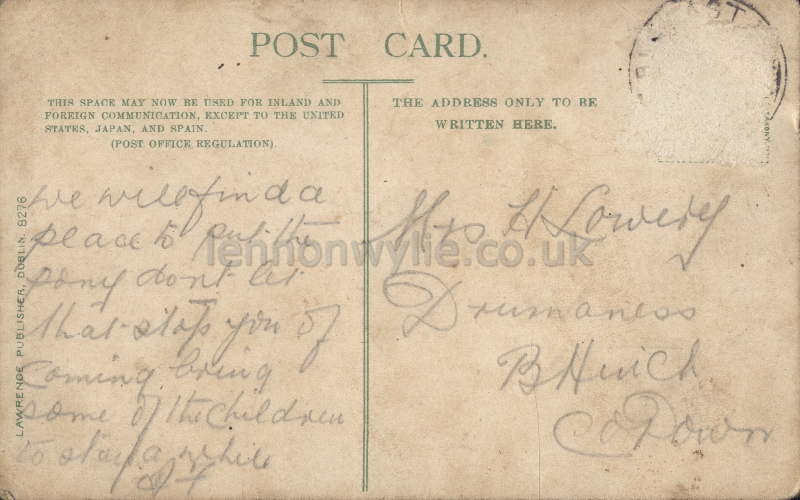 POST CARD.
THIS SPACE MAY NOW BE USED FOR INLAND AND
FOREIGN COMMUNICATION, EXCEPT TO THE UNITED
STATES, JAPAN, AND SPAIN.
(POST OFFICE REGULATION).
THE ADDRESS ONLY TO BE
WRITTEN HERE.
LAWRENCE PUBLISHER, DUBLIN. 8276
we will find a
place to put the
pony dont let
that stop you of
coming bring
some of the children
to stay a while
Mrs H Lowery
Drumaness
B Hinch
Co Down
lennonwylie.co.uk